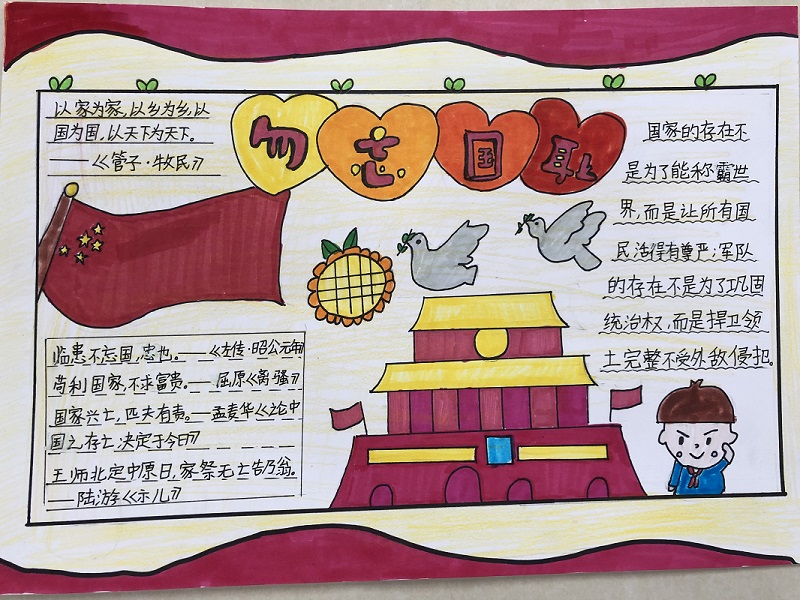 勿忘国耻
以家为家,以乡为乡,以
国为国,以天下为天下。
——《管子·牧民》
国家的存在不
是为了能称霸世
界,而是让所有国
民活得有尊严;军队
的存在不是为了巩固
统治权,而是捍卫领
土完整不受外敌侵犯。
临患不忘国,忠也。——《左传·昭公元年》
苟利国家,不求富贵。——屈原《离骚》
国家兴亡,匹夫有责。——孟麦华《论中
国之存亡决定于今日》
王师北定中原日,家祭无亡告乃翁。
——陆游《示儿》